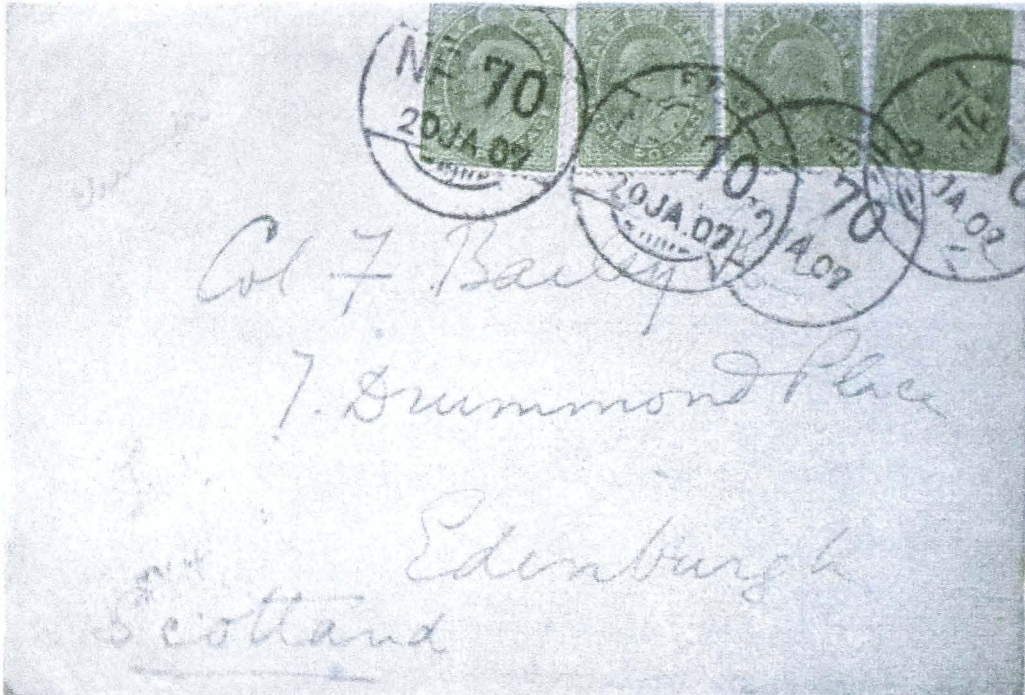 70
20JA.07
70
20JA.07
70
JA.07
Col F Bailey
7. Drummond Place
Edenburgh
Scotland